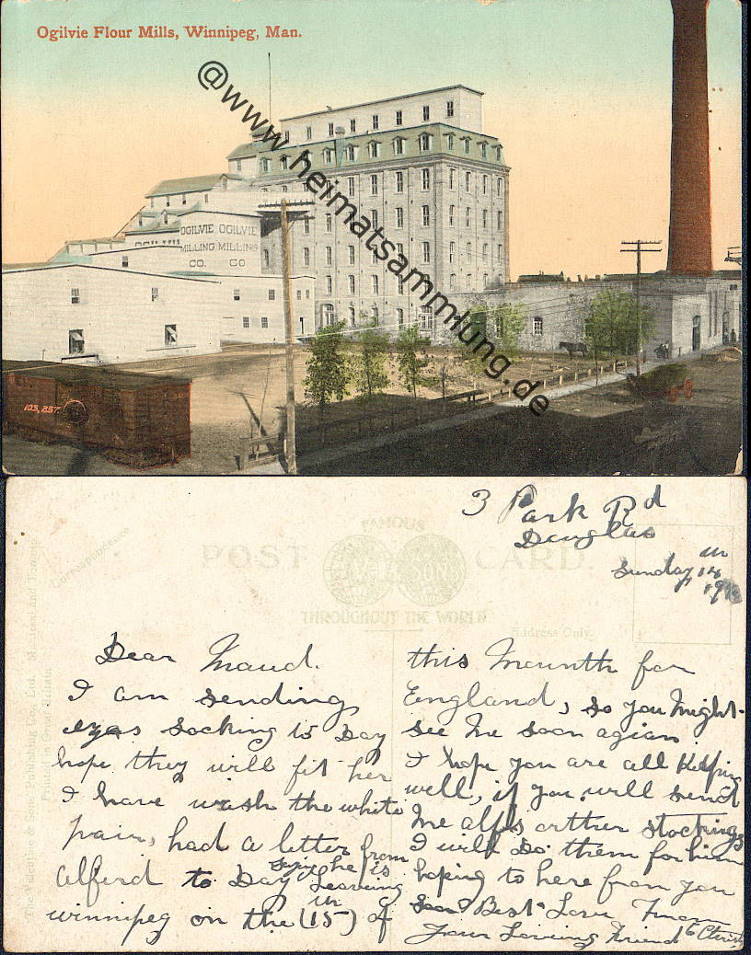 Ogilvie Flour Mills, Winnipeg, Man.
@www.heimatsammlung.de
OGILVIE OGILVIE
MILLING MILLING
CO. CO
103,857
3 Park Rd
Douglas
Sunday 14
POST CARD.
FAMOUS
THROUGHOUT THE WORLD
Correspondence
Address Only.
The Valentine & Sons' Publishing Co., Ltd. Montreal and Toronto
Printed in Great Britain
Dear Maud.
I am sending
socking to Day
hope they will fit her
I have wash the white
pair, had a letter from
alferd to Day says he is
Leaving
winnipeg on the (15) of
this Mounth for
England, so you Might
see Me soon agian.
I hope you are all Keeping
well, if you will send
Me alf's orther stockings
I will do them for him
hoping to here from you
soon Best Love From
Your Loveing Friend